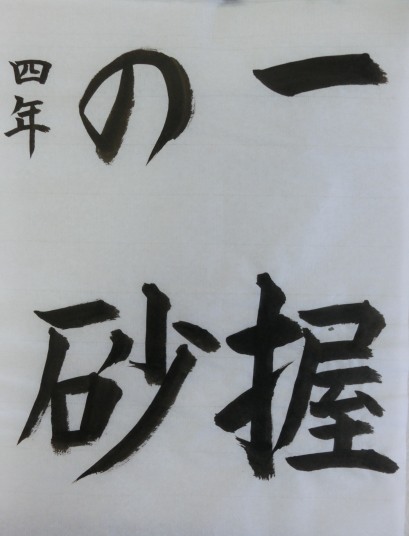 一握
の砂
四年